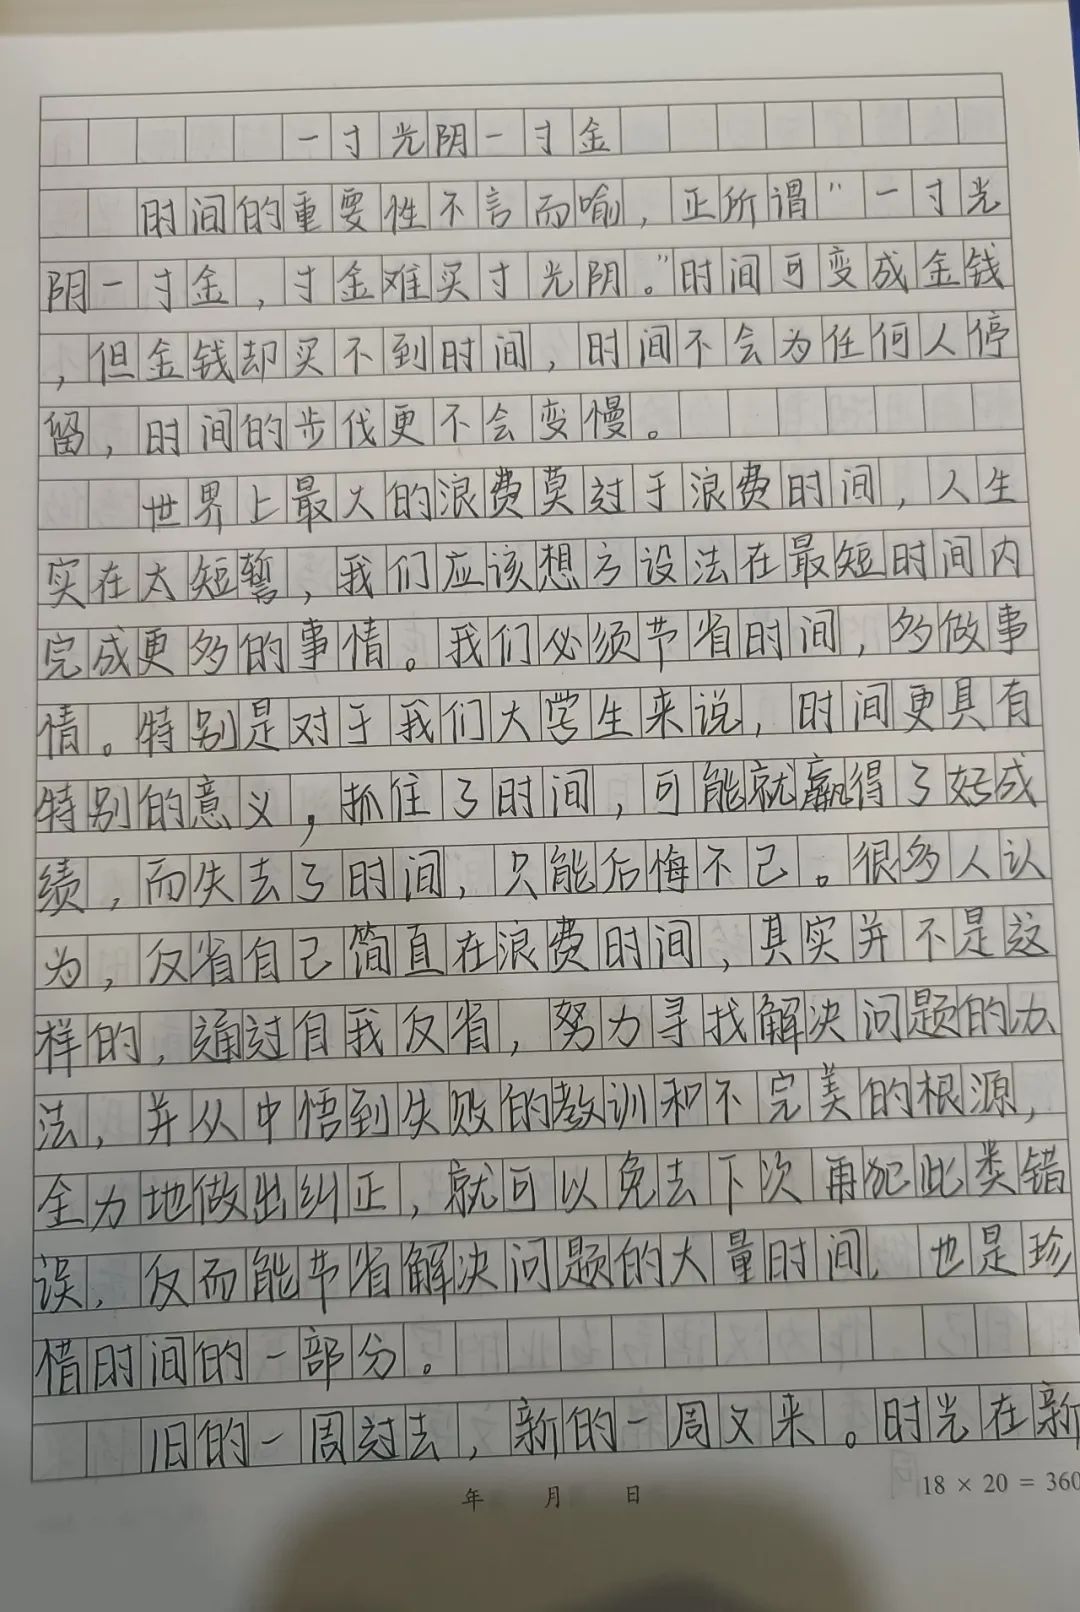 一寸光阴一寸金
时间的重要性不言而喻，正所谓“一寸光
阴一寸金，寸金难买寸光阴。”时间可变成金钱
，但金钱却买不到时间，时间不会为任何人停
留，时间的步伐更不会变慢。
世界上最大的浪费莫过于浪费时间，人生
实在太短暂，我们应该想方设法在最短时间内
完成更多的事情。我们必须节省时间，多做事
情。特别是对于我们大学生来说，时间更具有
特别的意义，抓住了时间，可能就赢得了好成
绩，而失去了时间，只能后悔不已。很多人认
为，反省自己简直在浪费时间，其实并不是这
样的，通过自我反省，努力寻找解决问题的办
法，并从中悟到失败的教训和不完美的根源，
全力地做出纠正，就可以免去下次再犯此类错
误，反而能节省解决问题的大量时间，也是珍
惜时间的一部分。
旧的一周过去，新的一周又来。时光在新
年 月 日
18 × 20 = 360